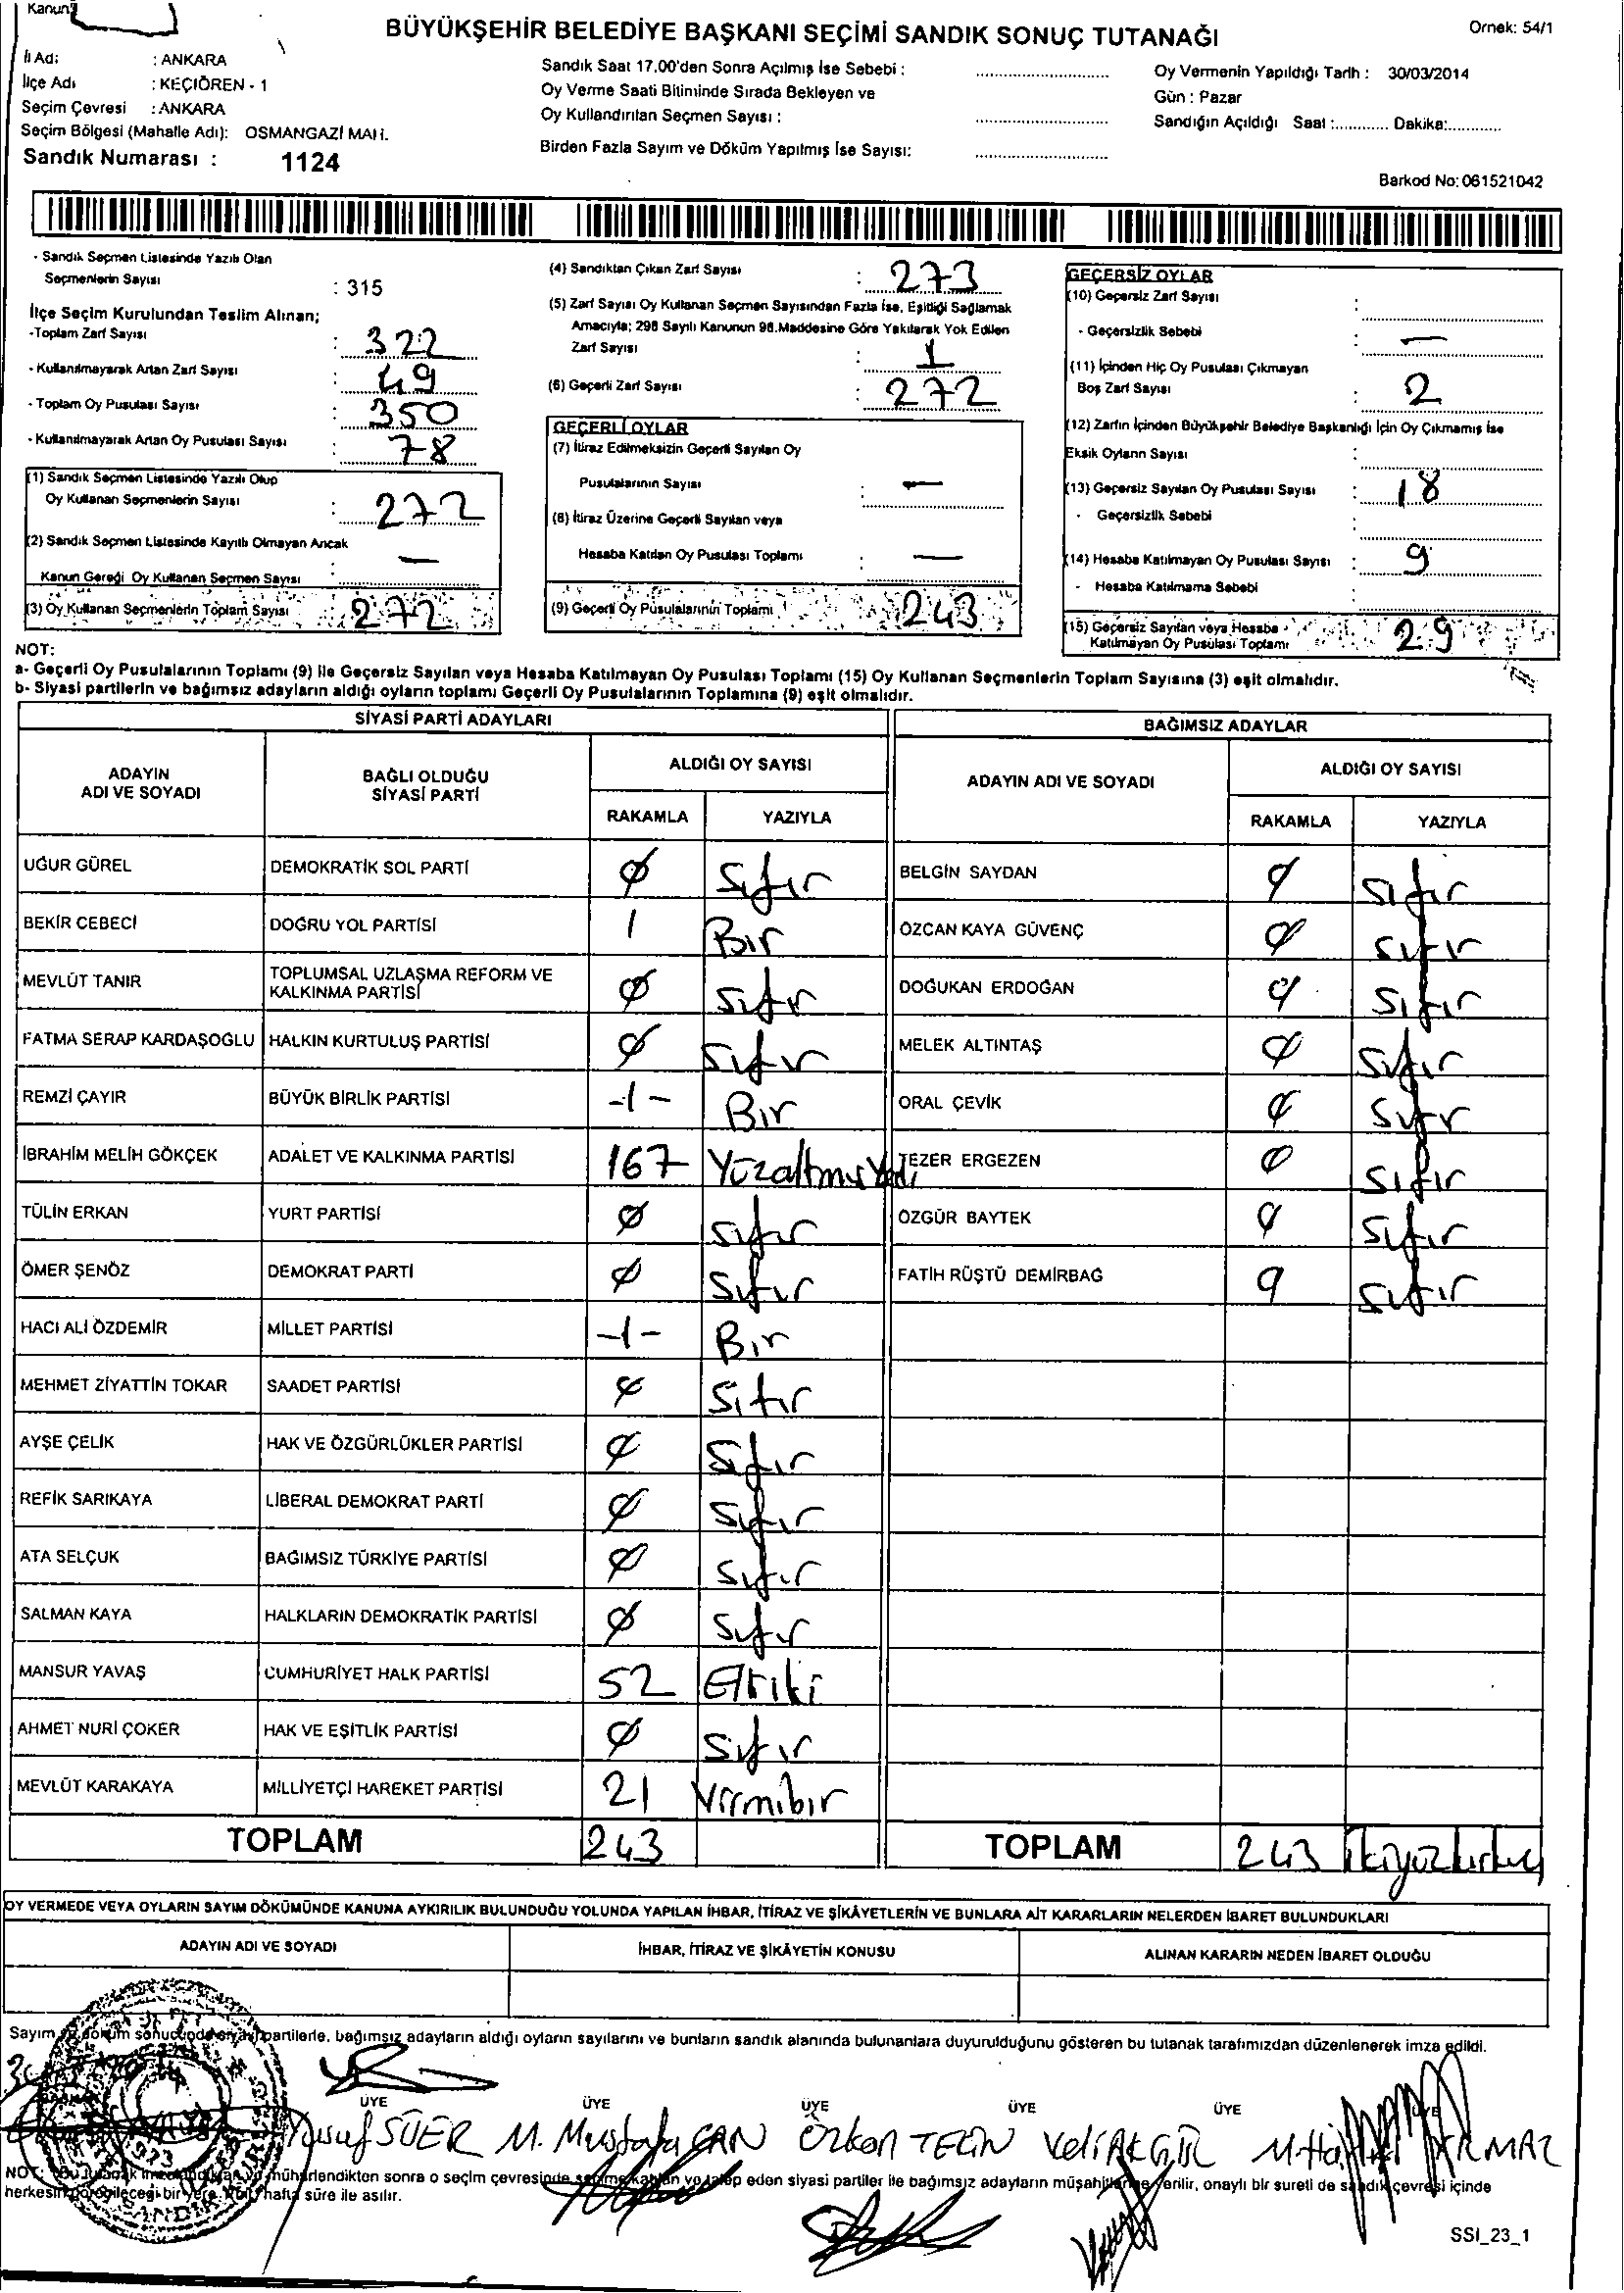 Kanun
BÜYÜKŞEHİR BELEDİYE BAŞKANI SEÇİMİ SANDIK SONUÇ TUTANAĞI
Örnek: 54/1
İl Adı : ANKARA
İlçe Adı : KEÇİÖREN - 1
Seçim Çevresi : ANKARA
Seçim Bölgesi (Mahalle Adı): OSMANGAZİ MAH.
Sandık Numarası : 1124
Sandık Saat 17.00'den Sonra Açılmış İse Sebebi :
Oy Verme Saati Bitiminde Sırada Bekleyen ve
Oy Kullandırılan Seçmen Sayısı :
Birden Fazla Sayım ve Döküm Yapılmış İse Sayısı:
Oy Vermenin Yapıldığı Tarih : 30/03/2014
Gün : Pazar
Sandığın Açıldığı Saat :............ Dakika:............
Barkod No: 061521042
- Sandık Seçmen Listesinde Yazılı Olan
Seçmenlerin Sayısı : 315
İlçe Seçim Kurulundan Teslim Alınan;
-Toplam Zarf Sayısı : 322
- Kullanılmayarak Artan Zarf Sayısı : 49
- Toplam Oy Pusulası Sayısı : 350
- Kullanılmayarak Artan Oy Pusulası Sayısı : 78
(1) Sandık Seçmen Listesinde Yazılı Olup
Oy Kullanan Seçmenlerin Sayısı : 272
(2) Sandık Seçmen Listesinde Kayıtlı Olmayan Ancak
Kanun Gereği Oy Kullanan Seçmen Sayısı : —
(3) Oy Kullanan Seçmenlerin Toplam Sayısı : 272
(4) Sandıktan Çıkan Zarf Sayısı : 273
(5) Zarf Sayısı Oy Kullanan Seçmen Sayısından Fazla İse, Eşitliği Sağlamak
Amacıyla; 298 Sayılı Kanunun 98.Maddesine Göre Yakılarak Yok Edilen
Zarf Sayısı : 1
(6) Geçerli Zarf Sayısı : 272
GEÇERLİ OYLAR
(7) İtiraz Edilmeksizin Geçerli Sayılan Oy
Pusulalarının Sayısı : —
(8) İtiraz Üzerine Geçerli Sayılan veya
Hesaba Katılan Oy Pusulası Toplamı : —
(9) Geçerli Oy Pusulalarının Toplamı : 243
GEÇERSİZ OYLAR
(10) Geçersiz Zarf Sayısı :
- Geçersizlik Sebebi : —
(11) İçinden Hiç Oy Pusulası Çıkmayan
Boş Zarf Sayısı : 2
(12) Zarfın İçinden Büyükşehir Belediye Başkanlığı İçin Oy Çıkmamış İse
Eksik Oyların Sayısı :
(13) Geçersiz Sayılan Oy Pusulası Sayısı : 18
- Geçersizlik Sebebi :
(14) Hesaba Katılmayan Oy Pusulası Sayısı : 9
- Hesaba Katılmama Sebebi
(15) Geçersiz Sayılan veya Hesaba
Katılmayan Oy Pusulası Toplamı : 29
NOT:
a- Geçerli Oy Pusulalarının Toplamı (9) ile Geçersiz Sayılan veya Hesaba Katılmayan Oy Pusulası Toplamı (15) Oy Kullanan Seçmenlerin Toplam Sayısına (3) eşit olmalıdır.
b- Siyasi partilerin ve bağımsız adayların aldığı oyların toplamı Geçerli Oy Pusulalarının Toplamına (9) eşit olmalıdır.
SİYASİ PARTİ ADAYLARI
ADAYIN ADI VE SOYADI
BAĞLI OLDUĞU SİYASİ PARTİ
ALDIĞI OY SAYISI
RAKAMLA YAZIYLA
UĞUR GÜREL DEMOKRATİK SOL PARTİ 0 Sıfır
BEKİR CEBECİ DOĞRU YOL PARTİSİ 1 Bir
MEVLÜT TANIR TOPLUMSAL UZLAŞMA REFORM VE KALKINMA PARTİSİ 0 Sıfır
FATMA SERAP KARDAŞOĞLU HALKIN KURTULUŞ PARTİSİ 0 Sıfır
REMZİ ÇAYIR BÜYÜK BİRLİK PARTİSİ -1- Bir
İBRAHİM MELİH GÖKÇEK ADALET VE KALKINMA PARTİSİ 167 Yüzaltmışyedi
TÜLİN ERKAN YURT PARTİSİ 0 Sıfır
ÖMER ŞENÖZ DEMOKRAT PARTİ 0 Sıfır
HACI ALİ ÖZDEMİR MİLLET PARTİSİ -1- Bir
MEHMET ZİYATTİN TOKAR SAADET PARTİSİ 0 Sıfır
AYŞE ÇELİK HAK VE ÖZGÜRLÜKLER PARTİSİ 0 Sıfır
REFİK SARIKAYA LİBERAL DEMOKRAT PARTİ 0 Sıfır
ATA SELÇUK BAĞIMSIZ TÜRKİYE PARTİSİ 0 Sıfır
SALMAN KAYA HALKLARIN DEMOKRATİK PARTİSİ 0 Sıfır
MANSUR YAVAŞ CUMHURİYET HALK PARTİSİ 52 Elliiki
AHMET NURİ ÇOKER HAK VE EŞİTLİK PARTİSİ 0 Sıfır
MEVLÜT KARAKAYA MİLLİYETÇİ HAREKET PARTİSİ 21 Yirmibir
TOPLAM 243
BAĞIMSIZ ADAYLAR
ADAYIN ADI VE SOYADI
ALDIĞI OY SAYISI
RAKAMLA YAZIYLA
BELGİN SAYDAN 0 Sıfır
ÖZCAN KAYA GÜVENÇ 0 Sıfır
DOĞUKAN ERDOĞAN 0 Sıfır
MELEK ALTINTAŞ 0 Sıfır
ORAL ÇEVİK 0 Sıfır
TEZER ERGEZEN 0 Sıfır
ÖZGÜR BAYTEK 0 Sıfır
FATİH RÜŞTÜ DEMİRBAĞ 0 Sıfır
TOPLAM 243
OY VERMEDE VEYA OYLARIN SAYIM DÖKÜMÜNDE KANUNA AYKIRILIK BULUNDUĞU YOLUNDA YAPILAN İHBAR, İTİRAZ VE ŞİKÂYETLERİN VE BUNLARA AİT KARARLARIN NELERDEN İBARET BULUNDUKLARI
ADAYIN ADI VE SOYADI
İHBAR, İTİRAZ VE ŞİKÂYETİN KONUSU
ALINAN KARARIN NEDEN İBARET OLDUĞU
Sayım ve döküm sonucunda siyasi partilerle, bağımsız adayların aldığı oyların sayılarını ve bunların sandık alanında bulunanlara duyurulduğunu gösteren bu tutanak tarafımızdan düzenlenerek imza edildi.
ÜYE ÜYE ÜYE ÜYE ÜYE ÜYE
Yusuf SÜER M. Mustafa CAN Özkan TEKİN Veli AKGÜL
NOT: Bu tutanak mühürlendikten sonra o seçim çevresinde seçime katılan ve talep eden siyasi partiler ile bağımsız adayların müşahitlerine verilir, onaylı bir sureti de sandık çevresi içinde
herkesin görebileceği bir yere hafta süre ile asılır.
SSI_23_1